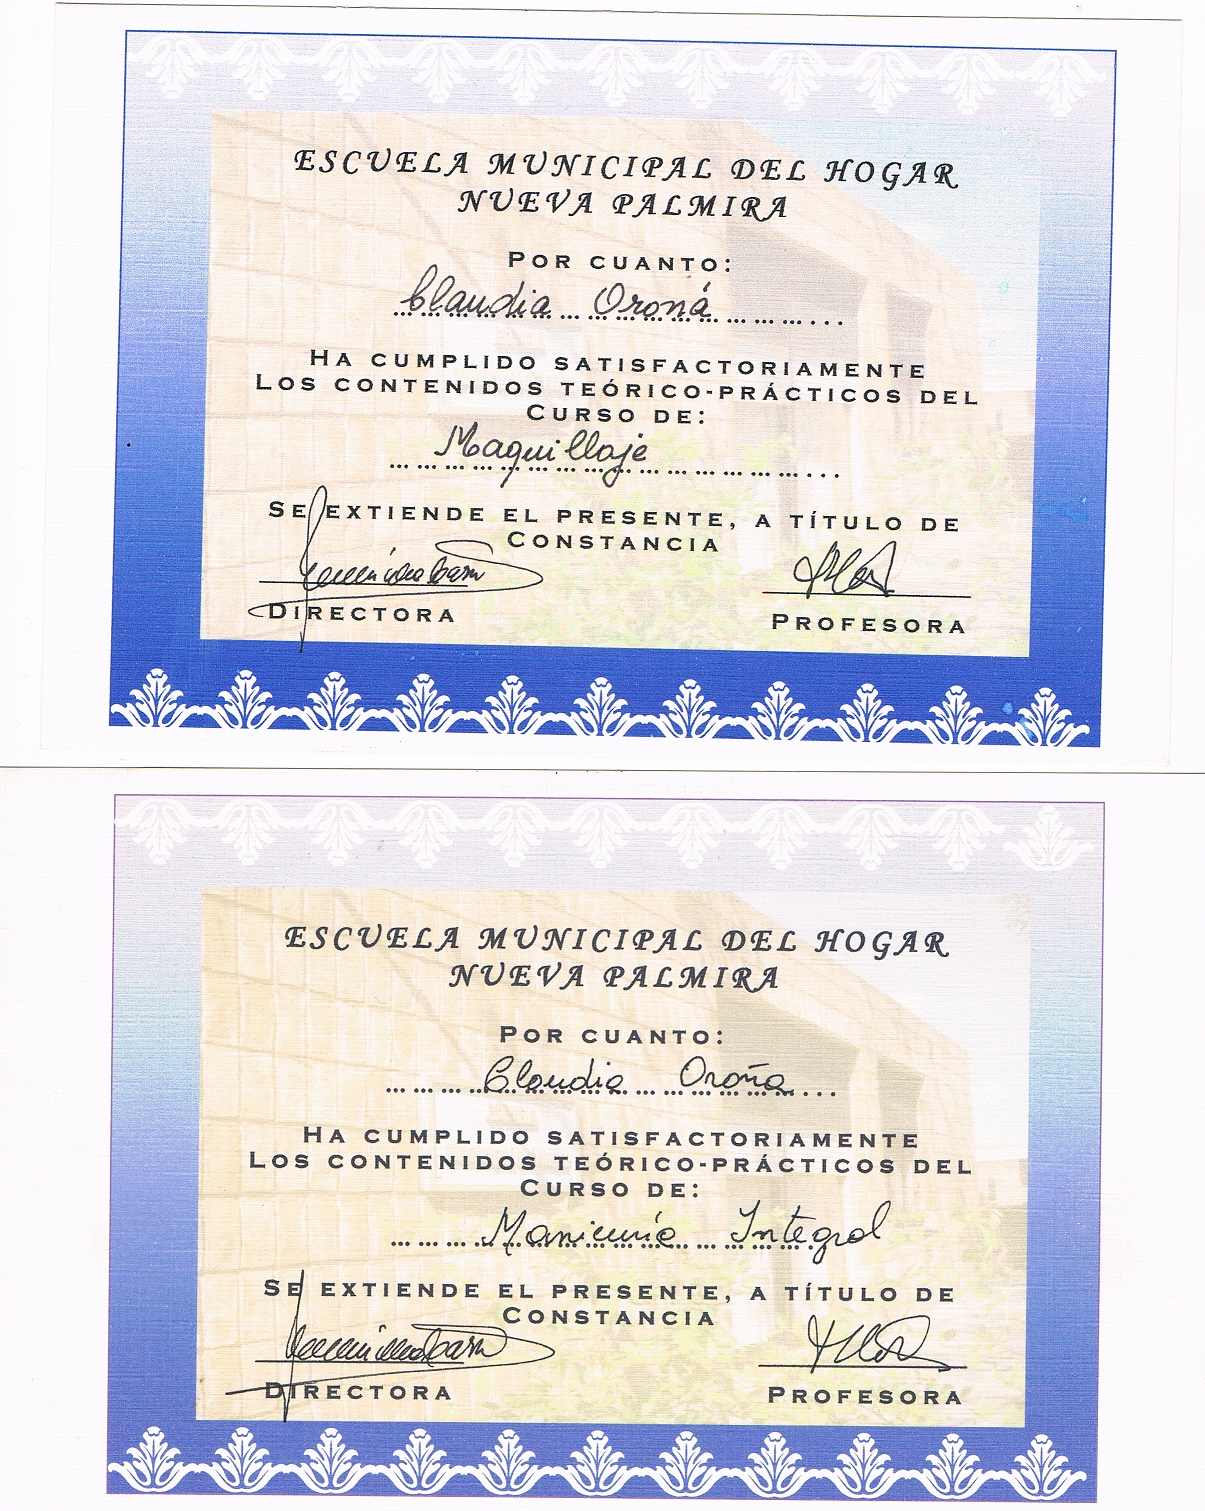 ESCUELA MUNICIPAL DEL HOGAR
NUEVA PALMIRA
POR CUANTO:
Claudia Oroná
HA CUMPLIDO SATISFACTORIAMENTE
LOS CONTENIDOS TEÓRICO-PRÁCTICOS DEL
CURSO DE:
Maquillaje
SE EXTIENDE EL PRESENTE, A TÍTULO DE
CONSTANCIA
DIRECTORA
PROFESORA
ESCUELA MUNICIPAL DEL HOGAR
NUEVA PALMIRA
POR CUANTO:
Claudia Oroña
HA CUMPLIDO SATISFACTORIAMENTE
LOS CONTENIDOS TEÓRICO-PRÁCTICOS DEL
CURSO DE:
Manicuría Integral
SE EXTIENDE EL PRESENTE, A TÍTULO DE
CONSTANCIA
DIRECTORA
PROFESORA